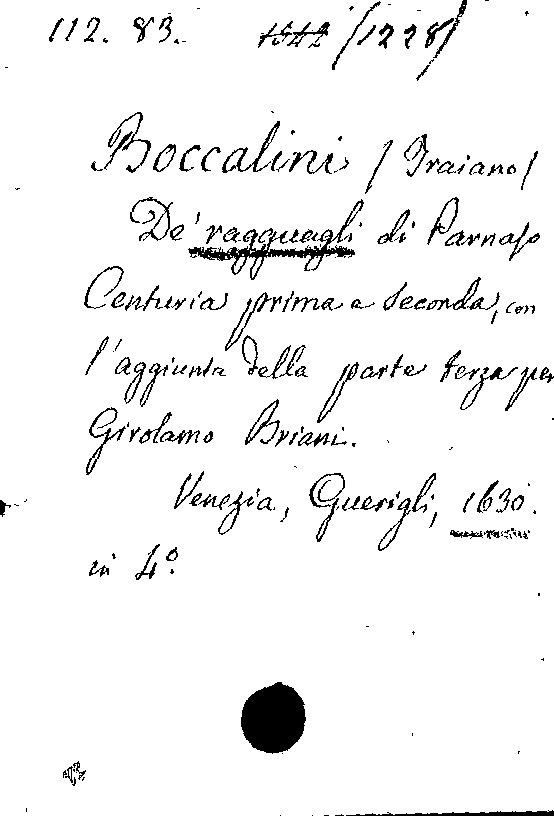 112. 83. 1842 /1228/
Boccalini /Traiano/
De' ragguagli di Parnaso
Centuria prima e seconda, con
l'aggiunta della parte terza per
Girolamo Briani.
Venezia, Guerigli, 1630.
in 4º.